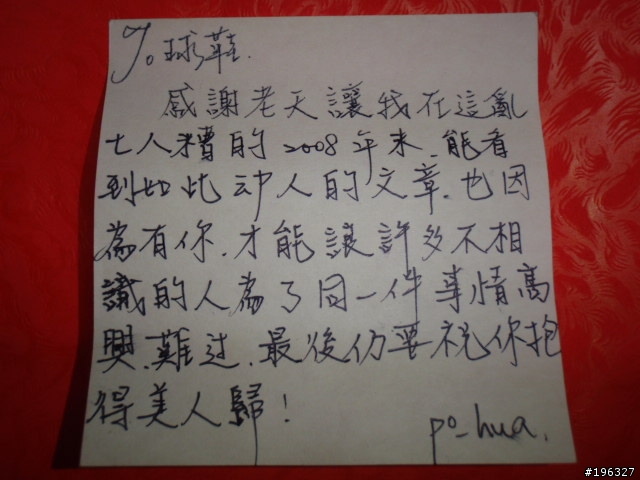 To 球鞋.
感謝老天讓我在這亂
七八糟的2008年末、能看
到如此动人的文章.也因
為有你.才能讓許多不相
識的人為了同一件事情高
興.難过.最後仍要祝你抱
得美人歸!
po-hua.
#196327